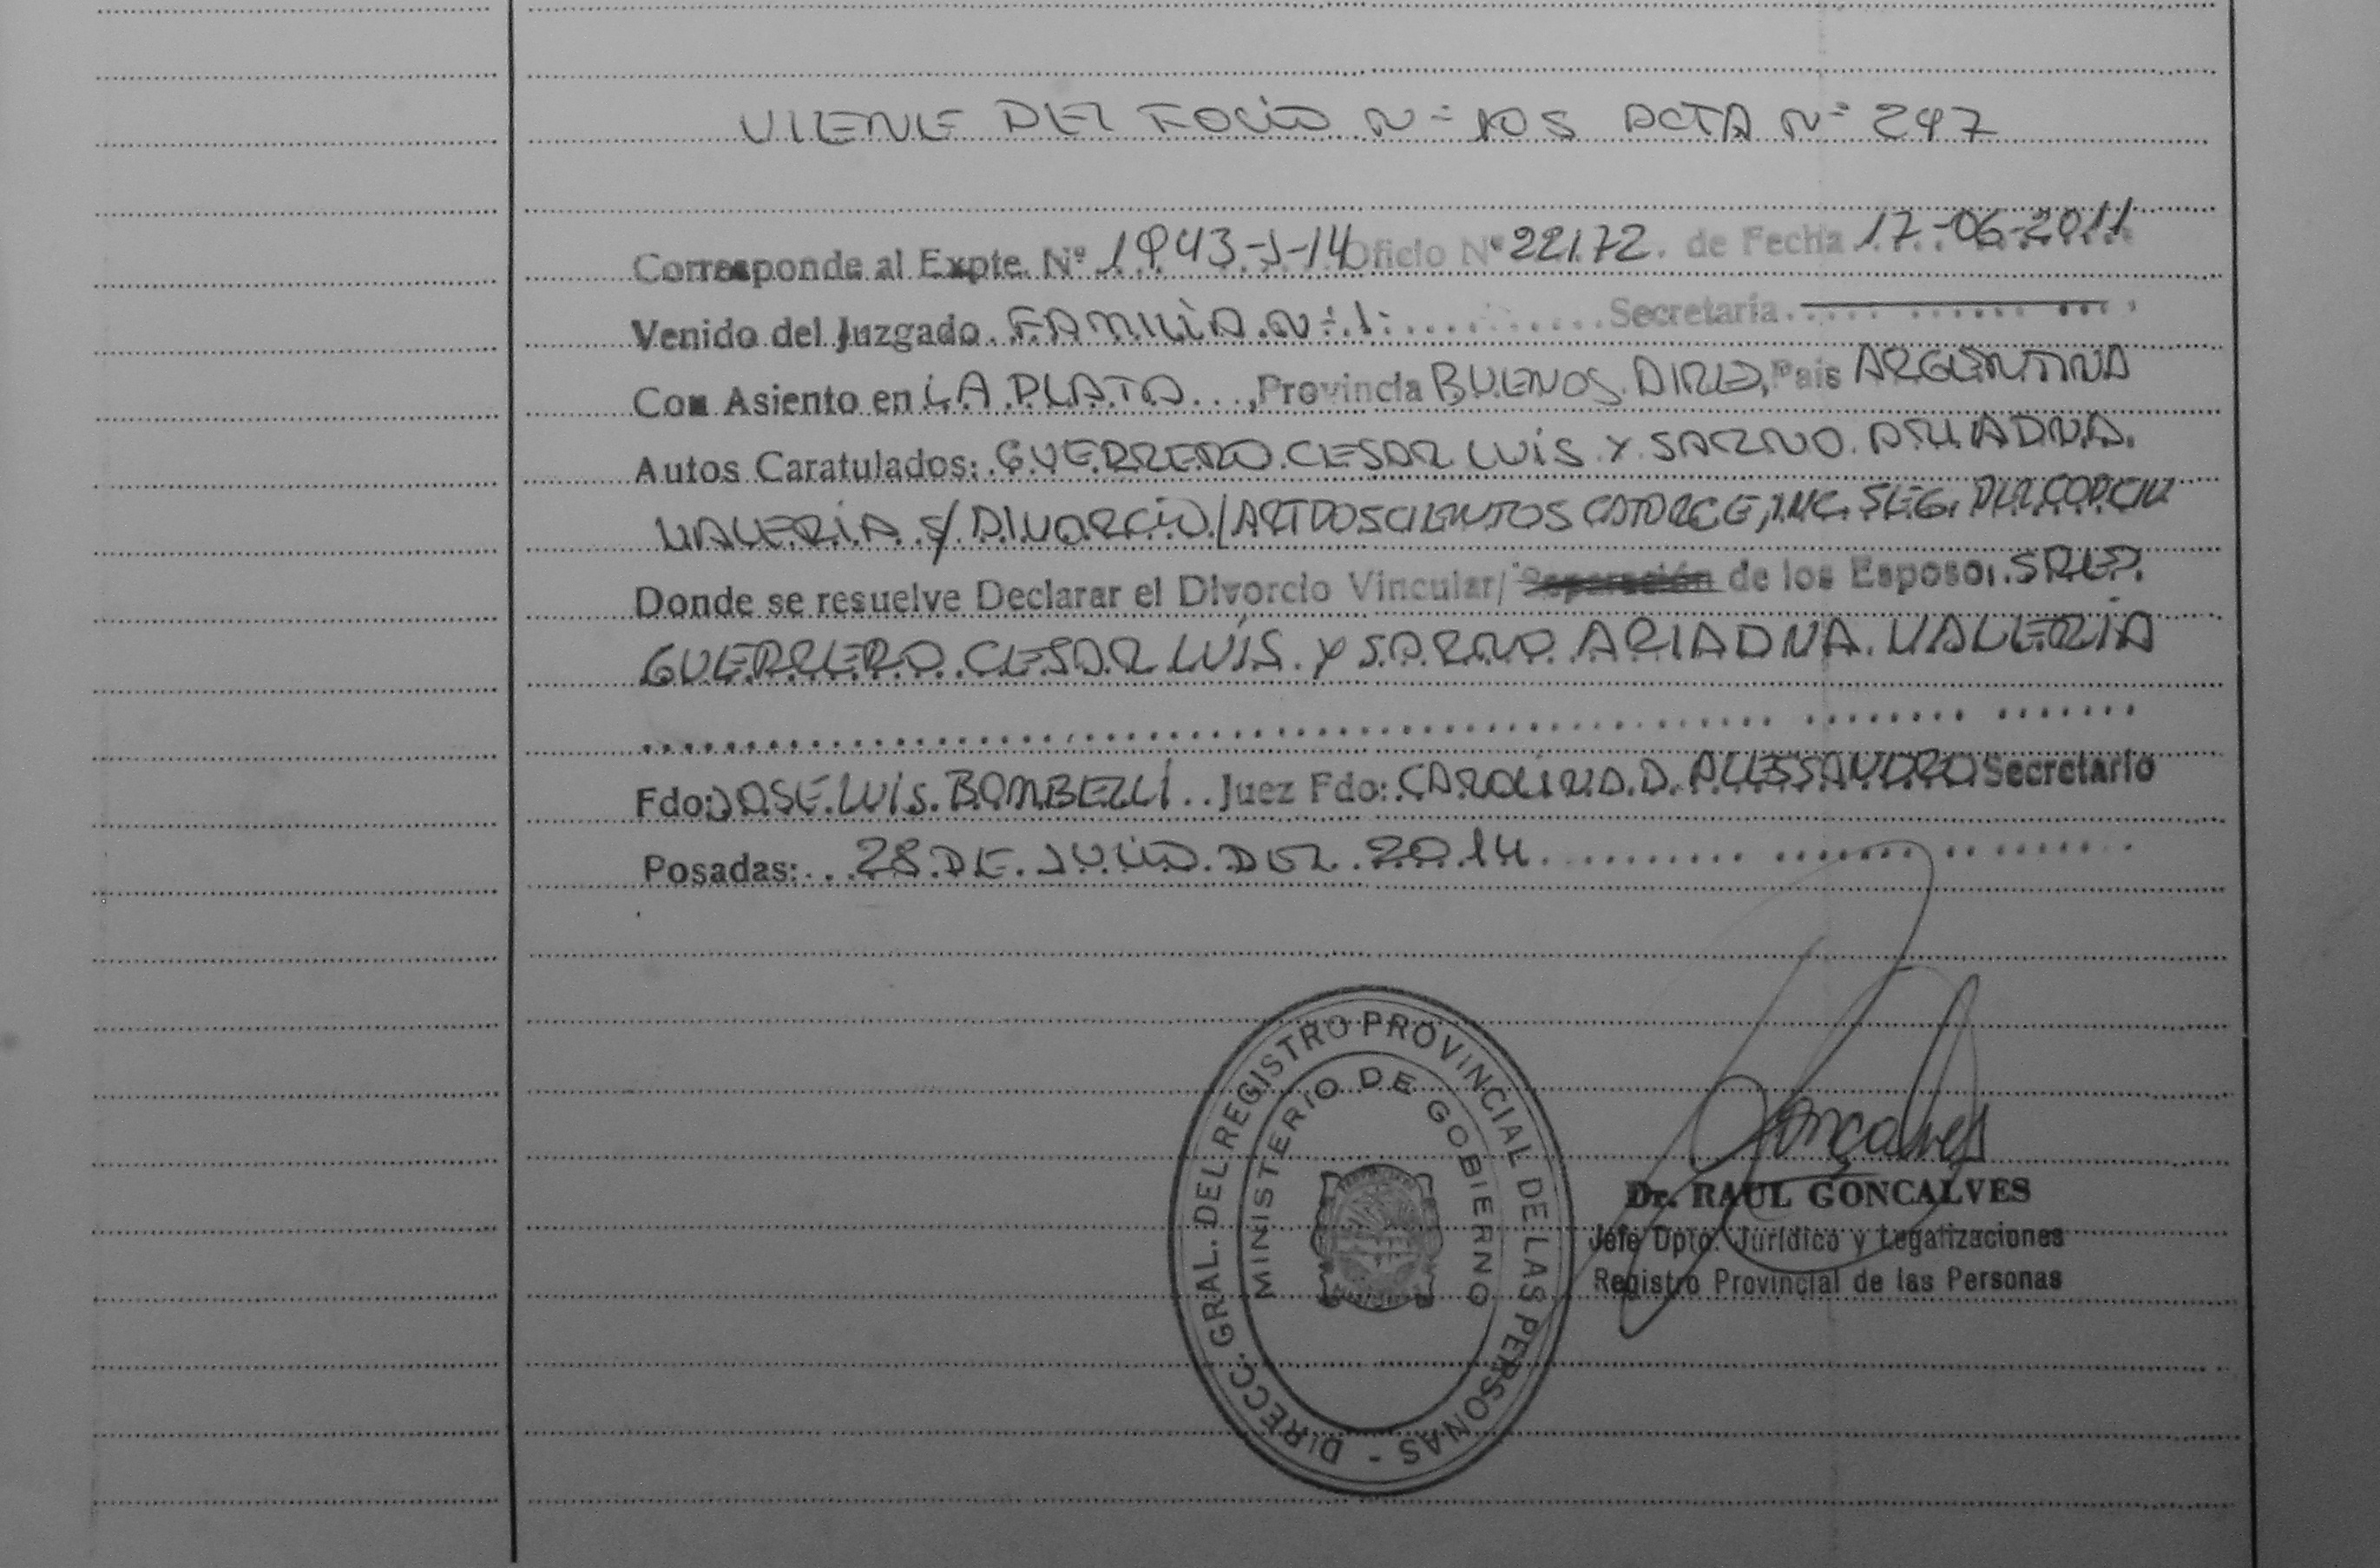 VIENE DEL FOLIO Nº 105 ACTA Nº 247
Corresponde al Expte. Nº 1943-J-14 Oficio Nº 22172. de Fecha 17-06-2011
Venido del Juzgado FAMILIA Nº 1. Secretaría
Con Asiento en LA PLATA, Provincia BUENOS AIRES, País ARGENTINA
Autos Caratulados: GUERRERO CESAR LUIS Y SARNO ARIADNA
VALERIA S/ DIVORCIO/ART DOSCIENTOS CATORCE, INC. SEG. DEL COD CIV
Donde se resuelve Declarar el Divorcio Vincular/ Separación de los Esposos SRES.
GUERRERO CESAR LUIS Y SARNO ARIADNA VALERIA
Fdo: JOSE LUIS BOMBELLI Juez Fdo: CAROLINA D. ALESSANDRO Secretario
Posadas: 28 DE JULIO DEL 2014
DIRECC. GRAL. DEL REGISTRO PROVINCIAL DE LAS PERSONAS -
MINISTERIO DE GOBIERNO
Goncalves
Dr. RAUL GONCALVES
Jefe Dpto. Jurídico y Legalizaciones
Registro Provincial de las Personas